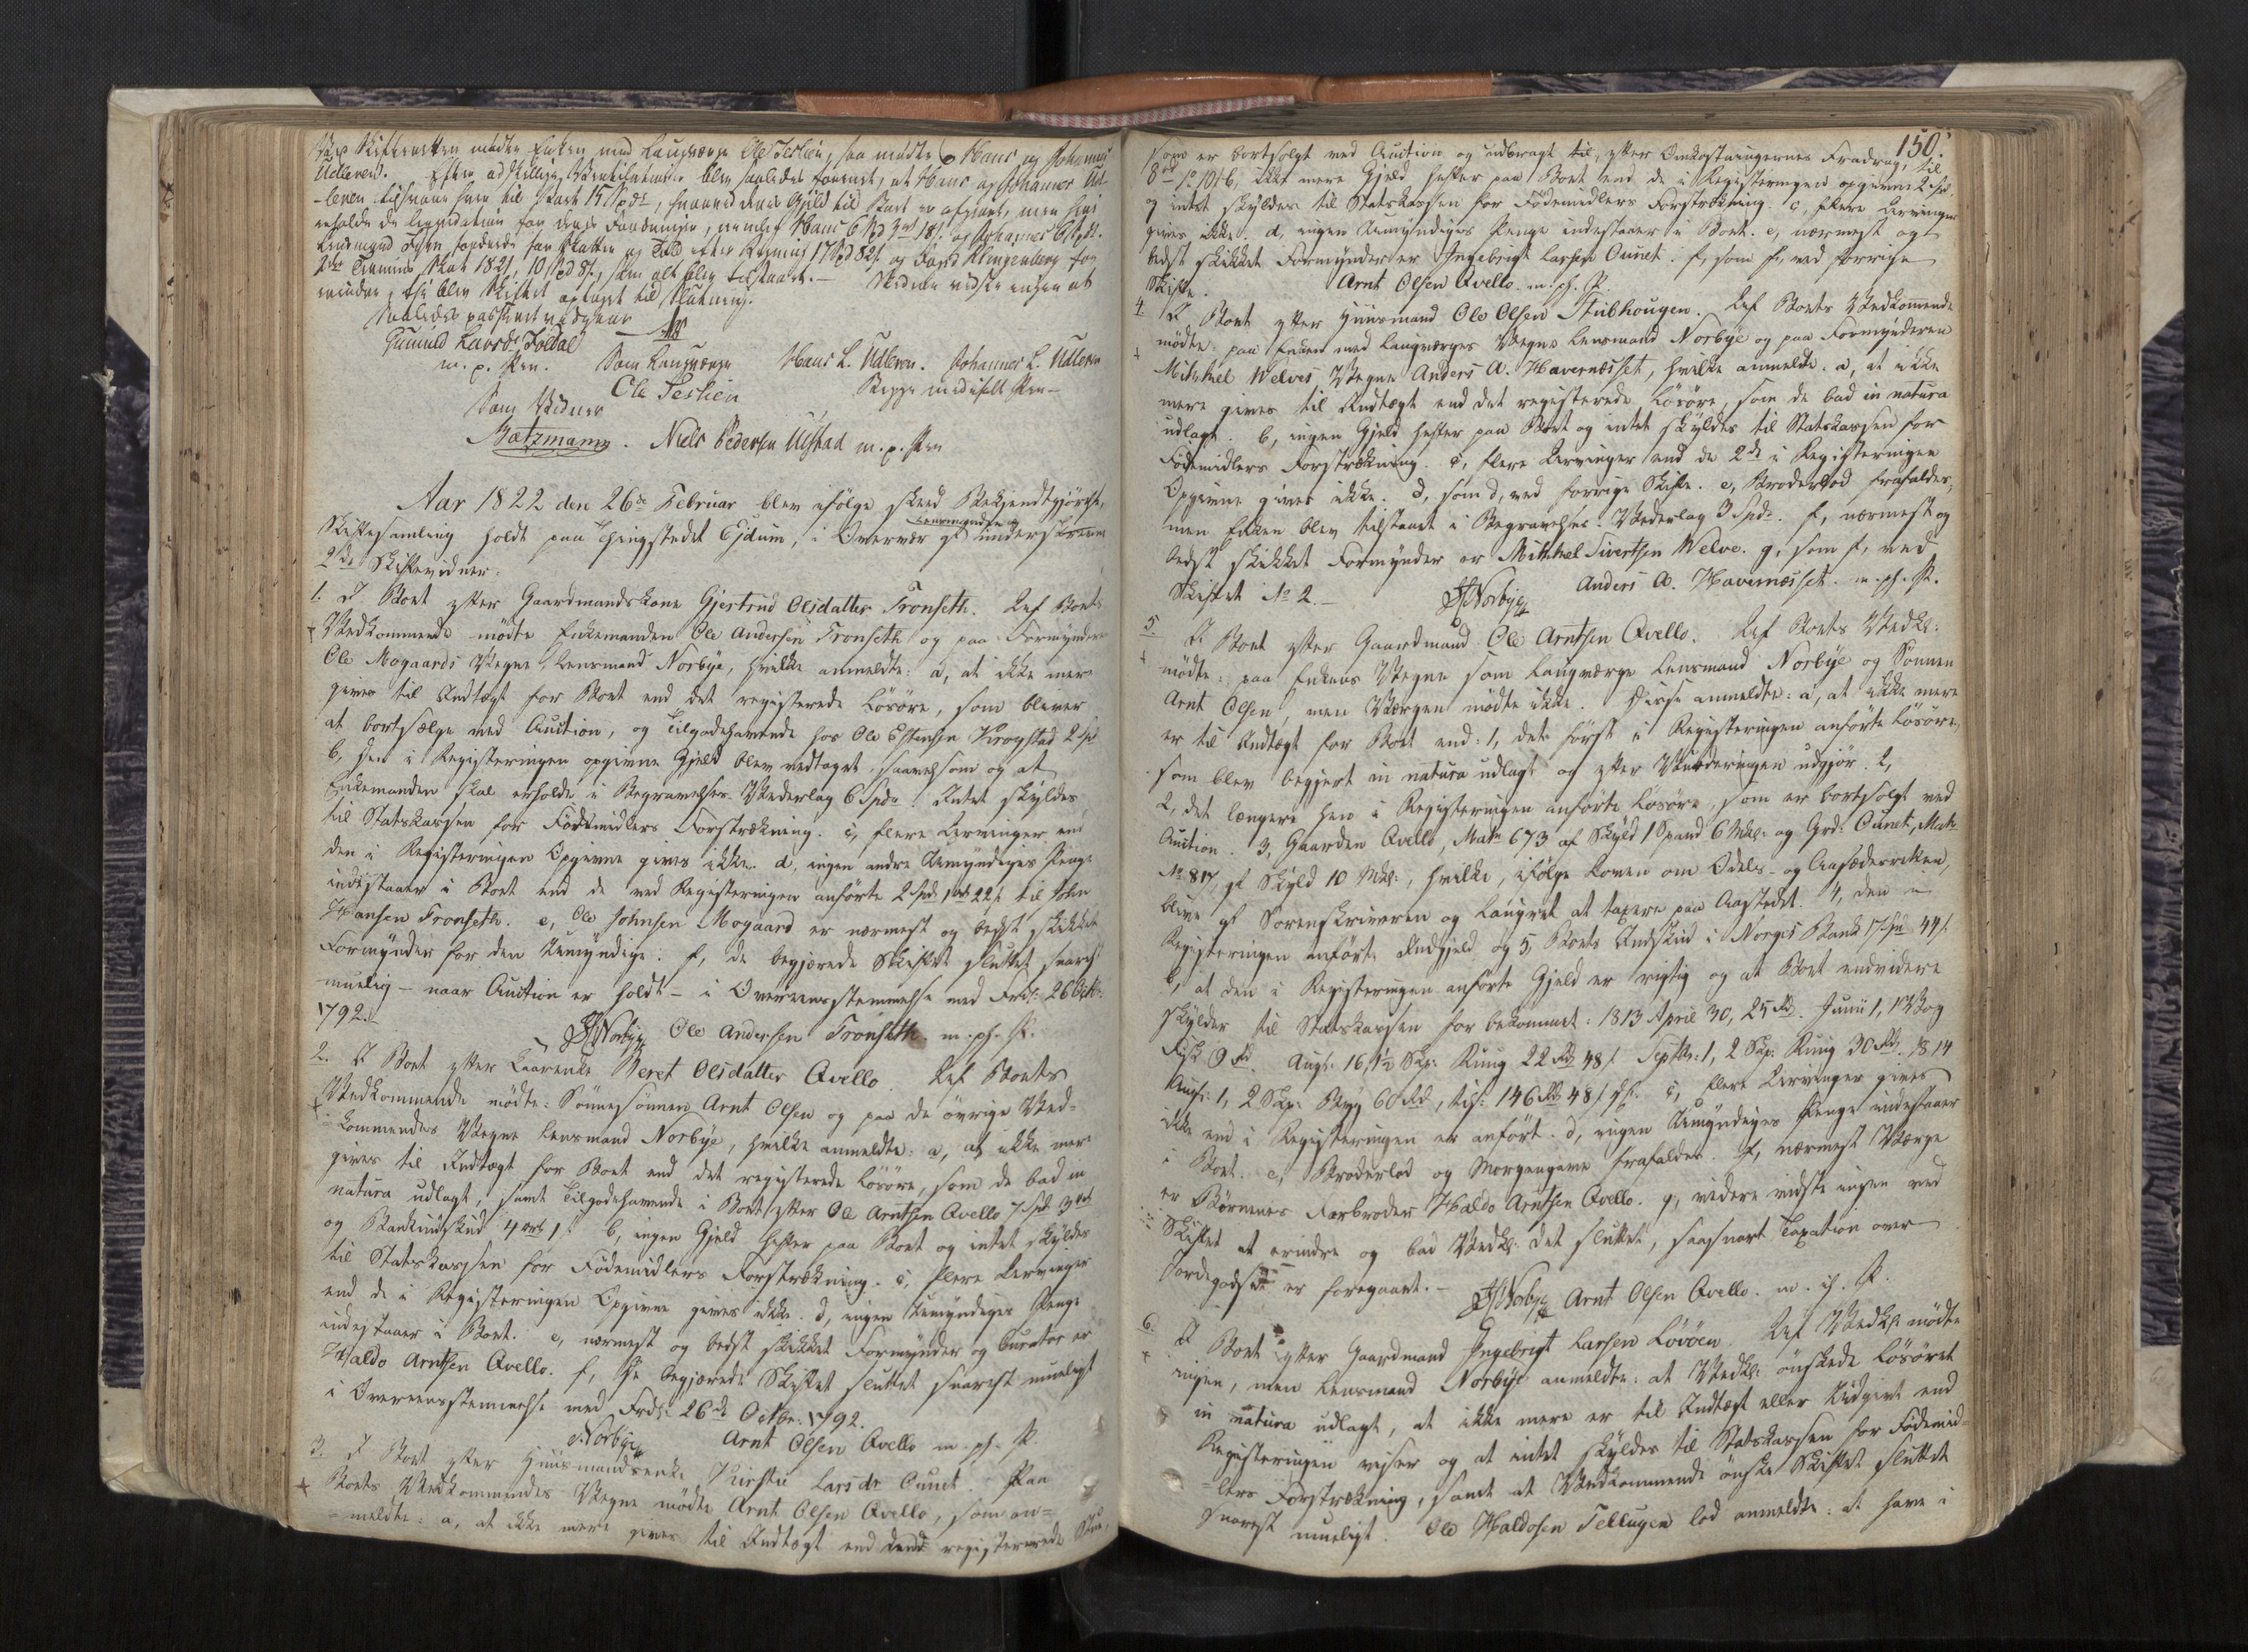 Ved Skifteretten mødte Enken med Laugværge Ole Teslien, saa mødte og Hans og Johannes
Udleren. Efter adskillige blev saaledes forenet, at Hans og Johannes Ud-
-leren tilsvare hver til Boet 15 Spdr, hvorved deres Gjeld til Boet er afgjort, men hver
erholde de liqvidation for deres Fordringer, nemlig Hans 6 Spd 3 ort 18 s. og Johannes 6 Spdr.
Lensmand fordrede for Skatter og Told efter Regning 17 Spd 82 s. og Foged Klingenberg for
2den Termins Skat 1821, 10 Spd 8 s., som alt blev tilstaaet. — Videre vidste ingen at
erindre, thi blev Skiftet optaget til Slutning.
Saaledes passeret vidner
Gunnild Larsdr Foldal
m. p. Pen. Som Laugværge Hans L. Udleren. Johannes L. Udleren
Ole Teslien Begge med iholdt Pen —
Som Vidner
Batzmann. Niels Pedersen Ulstad m. p. Pen
Aar 1822 den 26de Februar blev ifølge skeed Bekjendtgjørelse,
Skiftesamling holdt paa Thingstedet Ejdum, i Overvær af Lensmanden og underskrevne
2de Skiftevidner:
1. I Boet efter Gaardmandskone Gjertrud Olsdatter Tronseth. Af Boets
Vedkommende mødte Enkemanden Ole Andersen Tronseth og paa Formynder
Ole Mogaards Vegne Lensmand Norbye, hvilke anmeldte: a, at ikke mere
gives til Indtægt for Boet end det registerede Løsøre, som bliver
at bortsælge ved Auction, og Tilgodehavende hos Ole Estensen Krogstad 2 Spd
b, den i Registeringen opgivne Gjeld blev vedtaget saavelsom og at
Enkemanden skal erholde i Begravelses-Vederlag 6 Spdr. Intet skyldes
til Statskassen for Fødemidlers Forstrækning. c, flere Arvinger end
den i Registeringen Opgivne gives ikke. d, ingen andre Umyndiges Penge
indestaaer i Boet end de ved Registeringen anførte 2 Spd: 1 ort 22 s. til John
Hansen Tronseth. e, Ole Johnsen Mogaard er nærmest og bedst skikket
Formynder for den Umyndige. f, de begjærede Skiftet sluttet snarest
muelig — naar Auction er holdt — i Overeensstemmelse med Frd: 26 Octbr:
1792.
Norbye Ole Andersen Tronseth. m. ph. P.
2. I Boet efter Kaarenke Beret Olsdatter Avello. Af Boets
Vedkommende mødte: Sønnesønnen Arnt Olsen og paa de øvrige Ved-
kommendes Vegne Lensmand Norbye, hvilke anmeldte: a, at ikke mere
gives til Indtægt for Boet end det registerede Løsøre, som de bad in
natura udlagt, samt Tilgodehavende i Boet efter Ole Arntsen Avello 7 Spd 3 ort
og Bankindskud 4 ort 1 s. b, ingen Gjeld hefter paa Boet og intet skyldes
til Statskassen for Fødemidlers Forstrækning. c, flere Arvinger
end de i Registeringen Opgivne gives ikke. d, ingen Umyndiges Penge
indestaaer i Boet. e, nærmest og bedst skikket Formynder og Curator er
Haldo Arntsen Avello. f, De begjærede Skiftet sluttet snarest mueligt
i Overeensstemmelse med Frd: 26de Octbr. 1792.
Norbye Arnt Olsen Avello m. ph. P.
3. I Boet efter Huusmandsenke Kirstie Larsdr Ounet. Paa
Boets Vedkommendes Vegne mødte Arnt Olsen Avello, som an-
-meldte: a, at ikke mere gives til Indtægt end det registerede
150.
som er bortsolgt ved Auction og udbragt til, efter Omkostningernes Fradrag, til
8 ikke mere Gjeld hefter paa Boet end de i Registeringen opgivne 2 Spd.
og intet skyldes til Statskassen for Fødemidlers Forstrækning. c, flere Arvinger
gives ikke. d, ingen Umyndiges Penge indestaaer i Boet. e, nærmest og
bedst skikket Formynder er Ingebrigt Larsen Ounet. f, som f, ved forrige
Skifte. Arnt Olsen Avello. m. ph. P.
4. I Boet efter Huusmand Ole Olsen Stubhougen. Af Boets Vedkommende
mødte: paa Enken med Laugværges Vegne Lensmand Norbye og paa Formynderen
Mikkel Welves Vegne Anders A. Havernæsset, hvilke anmeldte: a, at ikke
mere gives til Indtægt end det registerede Løsøre, som de bad in natura
udlagt. b, ingen Gjeld hefter paa Boet og intet skyldes til Statskassen for
Fødemidlers Forstrækning. c, flere Arvinger end de 2de i Registeringen
Opgivne gives ikke. d, som d, ved forrige Skifte. e, Broderlod frafaldes,
men Enken blev tilstaaet i Begravelses-Vederlag 3 Spdr. f, nærmest og
bedst skikket Formynder er Mikkel Sivertsen Welve. g, som f, ved
Skiftet No 2. — Norbye Anders A. Havernæsset. m. ph. P.
5. I Boet efter Gaardmand Ole Arntsen Avello. Af Boets Vedk:
mødte: paa Enkens Vegne som Laugværge Lensmand Norbye og Sønnen
Arnt Olsen, men Værgen mødte ikke. Disse anmeldte: a, at ikke mere
er til Indtægt for Boet end: 1, det først i Registeringen anførte Løsøre,
som blev begjert in natura udlagt og efter Vurderingen udgjør. 2,
2, det længere hen i Registeringen anførte Løsøre, som er bortsolgt ved
Auction. 3, Gaarden Avello, Matr 673 af Skyld 1 Spand 6 Mkl: og Grd: Ounet, Matr
No 817, af Skyld 10 Mkl:, hvilke, ifølge Loven om Odels- og Aasædesretten,
blive af Sorenskriveren og Laugret at taxere paa Aastedet. 4, den i
Registeringen anførte Indgjeld og 5, Boets Indskud i Norges Bank 17 Spd 44 s.
b, at den i Registeringen anførte Gjeld er rigtig og at Boet endvidere
skylder til Statskassen for bekommet: 1813 April 30, 25 Rd. Junii 1, 1 Vog
Fisk 9 Rd. Augs: 16, 1½ Skp: Ruug 22 Rd 48 s. Septbr: 1, 2 Skp: Ruug 30 Rd. 1814
Augs: 1, 2 Skp: Byg 60 Rd, tils: 146 Rd 48 s. c, flere Arvinger gives
ikke end i Registeringen er anført. d, ingen Umyndiges Penge indestaaer
i Boet. e, Broderlod og Morgengave frafaldes. f, nærmest Værge
er Børnenes Farbroder Haldo Arntsen Avello. g, videre vidste ingen ved
Skiftet at erindre og bad Vedk: det sluttet, saasnart Taxation over
Jordegodset er foregaaet. — Norbye Arnt Olsen Avello. m. ph. P.
6. I Boet efter Gaardmand Ingebrigt Larsen Løvöen. Af Vedk: mødte
ingen, men Lensmand Norbye anmeldte: at Vedk: ønskede Løsøret
in natura udlagt, at ikke mere er til Indtægt eller Udgivt end
Registeringen viser og at intet skyldes til Statskassen for Fødemid-
-lers Forstrækning, samt at Vedkommende ønske Skiftet sluttet
snarest mueligt. Ole Haldosen Tellugen lod anmeldte: at have i